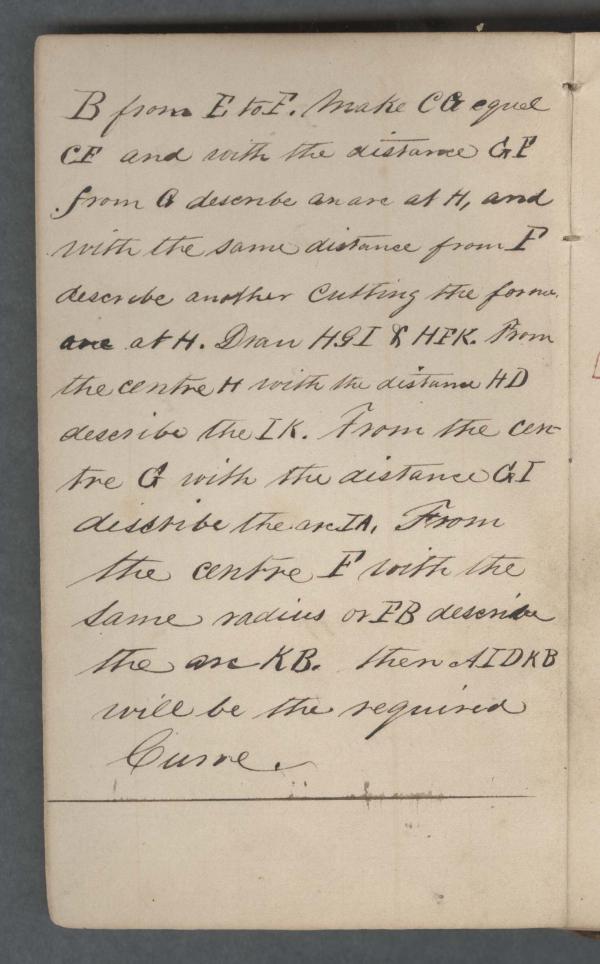 B from E to F. Make CG equel
CF and with the distance GF
from G describe an arc at H, and
with the same distance from F
describe another Cutting the forme
arc at H. Draw HGI & HFK. From
the centre H with the distance HD
describe the IK. From the cen-
tre G with the distance GI
discribe the arc IA, From
the centre F with the
same radius or FB describe
the arc KB. then AIDKB
will be the required
Curve.